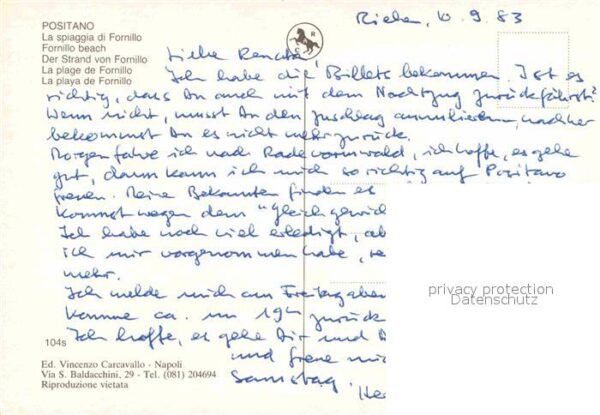 POSITANO
La spiaggia di Fornillo
Fornillo beach
Der Strand von Fornillo
La plage de Fornillo
La playa de Fornillo
Riehen, 10.9.83
Liebe Renata
Ich habe die Billets bekommen. Ist es
richtig, dass Du auch mit dem Nachtzug zurückfährst?
Wenn nicht, musst Du den Zuschlag nachher
bekommst Du es nicht mehr zurück.
Morgen fahre ich nach Radevormwald, ich hoffe, es gehe
gut, dann kann ich mich so richtig auf Positano
freuen. Meine Bekannten finden es
kommst wegen dem "Gleichgewich
Ich habe noch viel erledigt, ab
ich mir vorgenommen habe, re
mehr.
Ich melde mich am Freitagaben
komme ca. um 19h zurück
Ich hoffe, es gehe Dir und D
und freue mic
Samstag. He
privacy protection
Datenschutz
104s
Ed. Vincenzo Carcavallo - Napoli
Via S. Baldacchini, 29 - Tel. (081) 204694
Riproduzione vietata